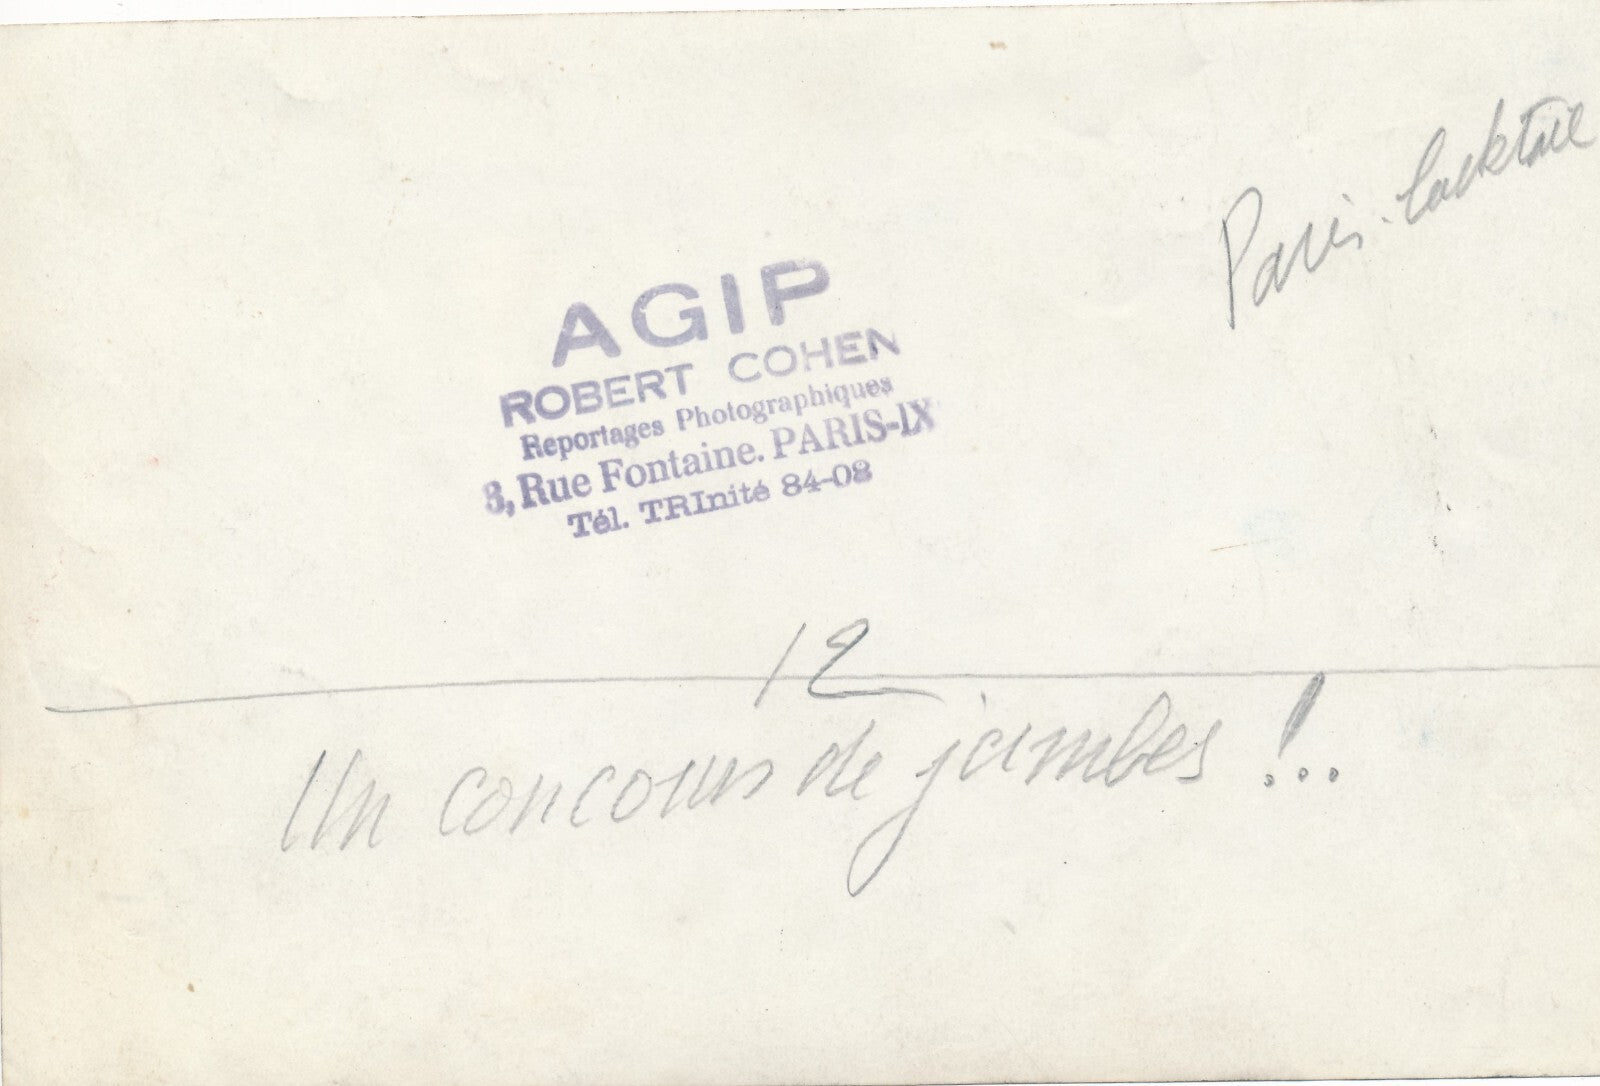 Paris-Cocktail
AGIP
ROBERT COHEN
Reportages Photographiques
8, Rue Fontaine. PARIS-IX
Tél. TRInité 84-08
12
Un concours de jambes !...